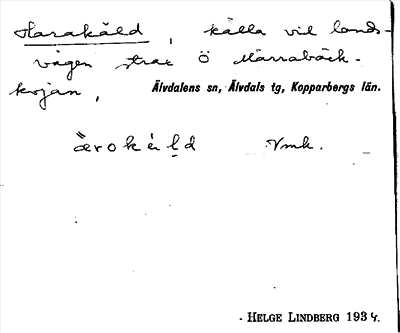 Harakäld, källa vid lands-
vägen strax Ö Märrabäck-
kojan,
Älvdalens sn, Älvdals tg, Kopparbergs län.
ærokèḷd Vmk.
- HELGE LINDBERG 1934.